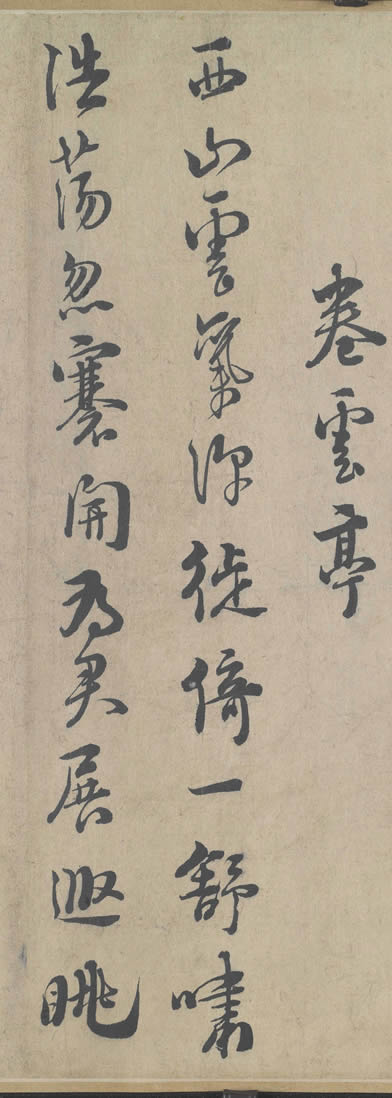 卷雲亭
西山雲氣深徙倚一舒嘯
浩蕩忽褰開為君展遐眺